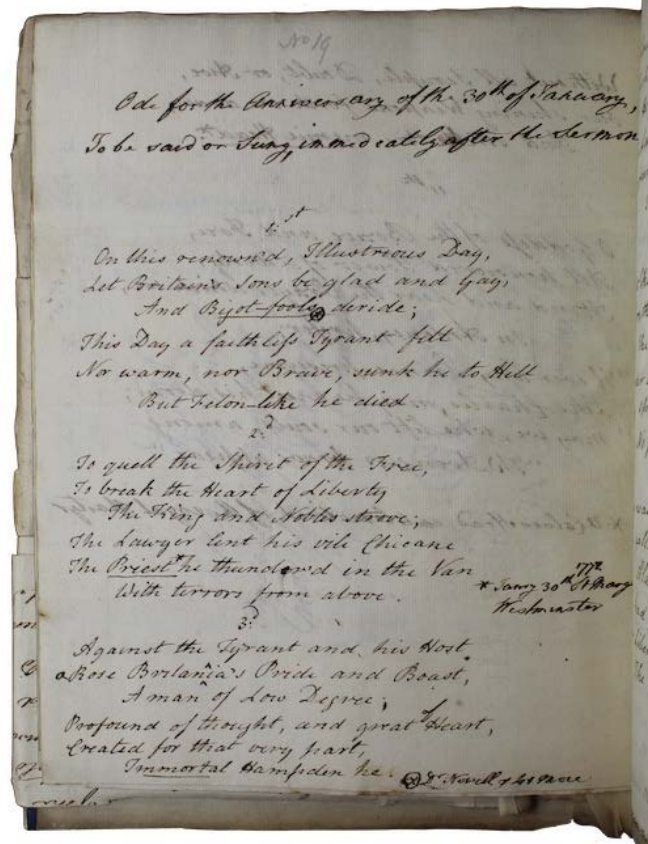 No 19
Ode for the Anniversary of the 30th of January,
To be said or Sung, immediately after the Sermon
1st
On this renown'd, Illustrious Day,
Let Britain's Sons be glad and Gay,
And Bigot-fools ⊗ deride;
This Day a faithless Tyrant fell
Nor warm, nor Brave, sunk he to Hell
But Felon-like he died
2d
To quell the Spirit of the Free,
To break the Heart of Liberty
The King and Nobles strove;
The Lawyer lent his vile Chicane
The Priest* he thunder'd in the Van
With terrors from above.
* Janry 30th 1772 St Mary
Westminster
3d
Against the Tyrant and his Host
Rose Britania's Pride and Boast,
A man of Low Degree;
Profound of thought, and great of Heart,
Created for that very part,
Immortal Hampden he.
⊗ Dr Nowell &